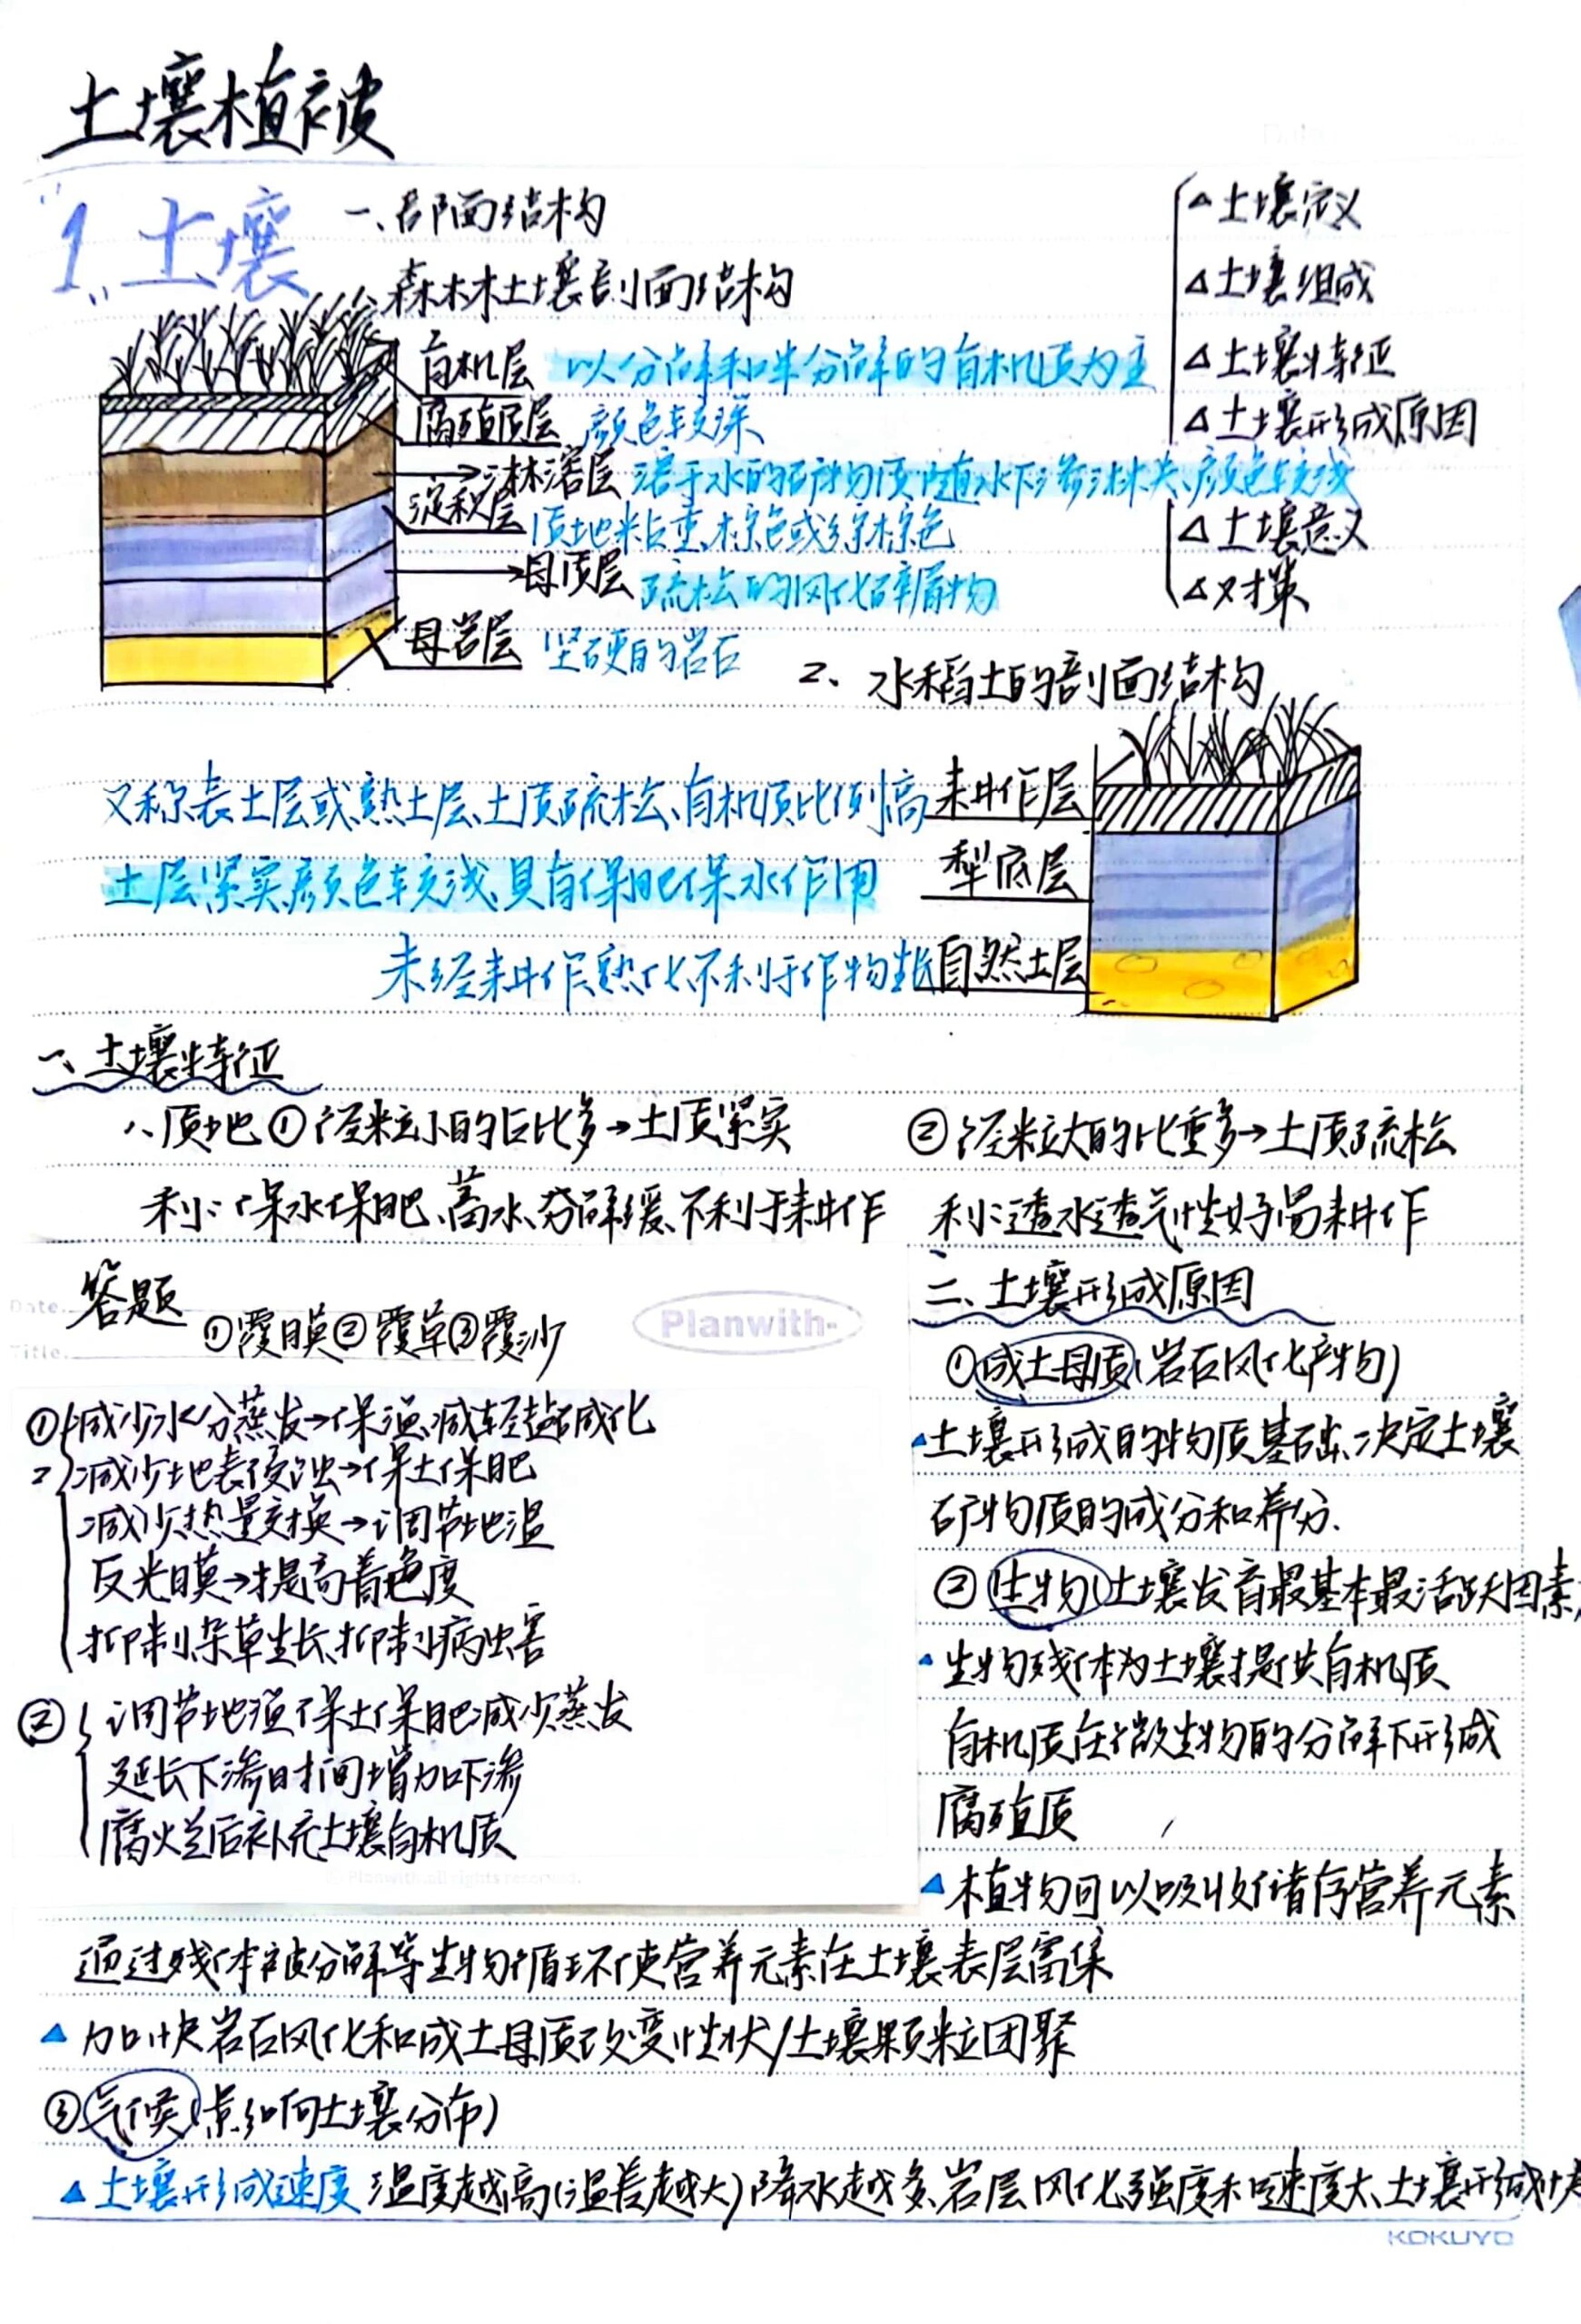 土壤植被
1、土壤
一、剖面结构
森林土壤剖面结构
有机层 以分解和半分解的有机质为主
腐殖质层 颜色较深
淋溶层 溶于水的矿物质随水下渗淋失、颜色较浅
淀积层 质地粘重、棕色或红棕色
母质层 疏松的风化碎屑物
母岩层 坚硬的岩石
△土壤定义
△土壤组成
△土壤特征
△土壤形成原因
△土壤意义
△对策
2、水稻土的剖面结构
又称表土层或熟土层、土质疏松、有机质比例高 耕作层
土层紧实颜色较浅、具有保肥保水作用 犁底层
未经耕作、熟化不利于作物生长 自然土层
一、土壤特征
1、质地①径粒小的占比多→土质紧实
利:保水保肥、蓄水、分解缓、不利于耕作
②径粒大的比重多→土质疏松
利:透水透气性好易耕作
答题
Date.
Title.
①覆膜②覆草③覆沙
Planwith-
①减少水分蒸发→保温、减轻盐碱化
减少地表侵蚀→保土保肥
减少热量交换→调节地温
反光膜→提高着色度
抑制杂草生长、抑制病虫害
②调节地温保土保肥减少蒸发
延长下渗时间增加下渗
腐烂后补充土壤有机质
Planwith.all rights reserved.
二、土壤形成原因
①成土母质(岩石风化产物)
▲土壤形成的物质基础、决定土壤
矿物质的成分和养分.
②生物(土壤发育最基本最活跃因素)
▲生物残体为土壤提供有机质
有机质在微生物的分解下形成
腐殖质
▲植物可以吸收储存营养元素
通过残体被分解等生物循环使营养元素在土壤表层富集
▲加快岩石风化和成土母质改变性状/土壤颗粒团聚
③气候(影响土壤分布)
▲土壤形成速度 温度越高(温差越大)降水越多、岩层风化强度和速度大、土壤形成快
KOKUYO